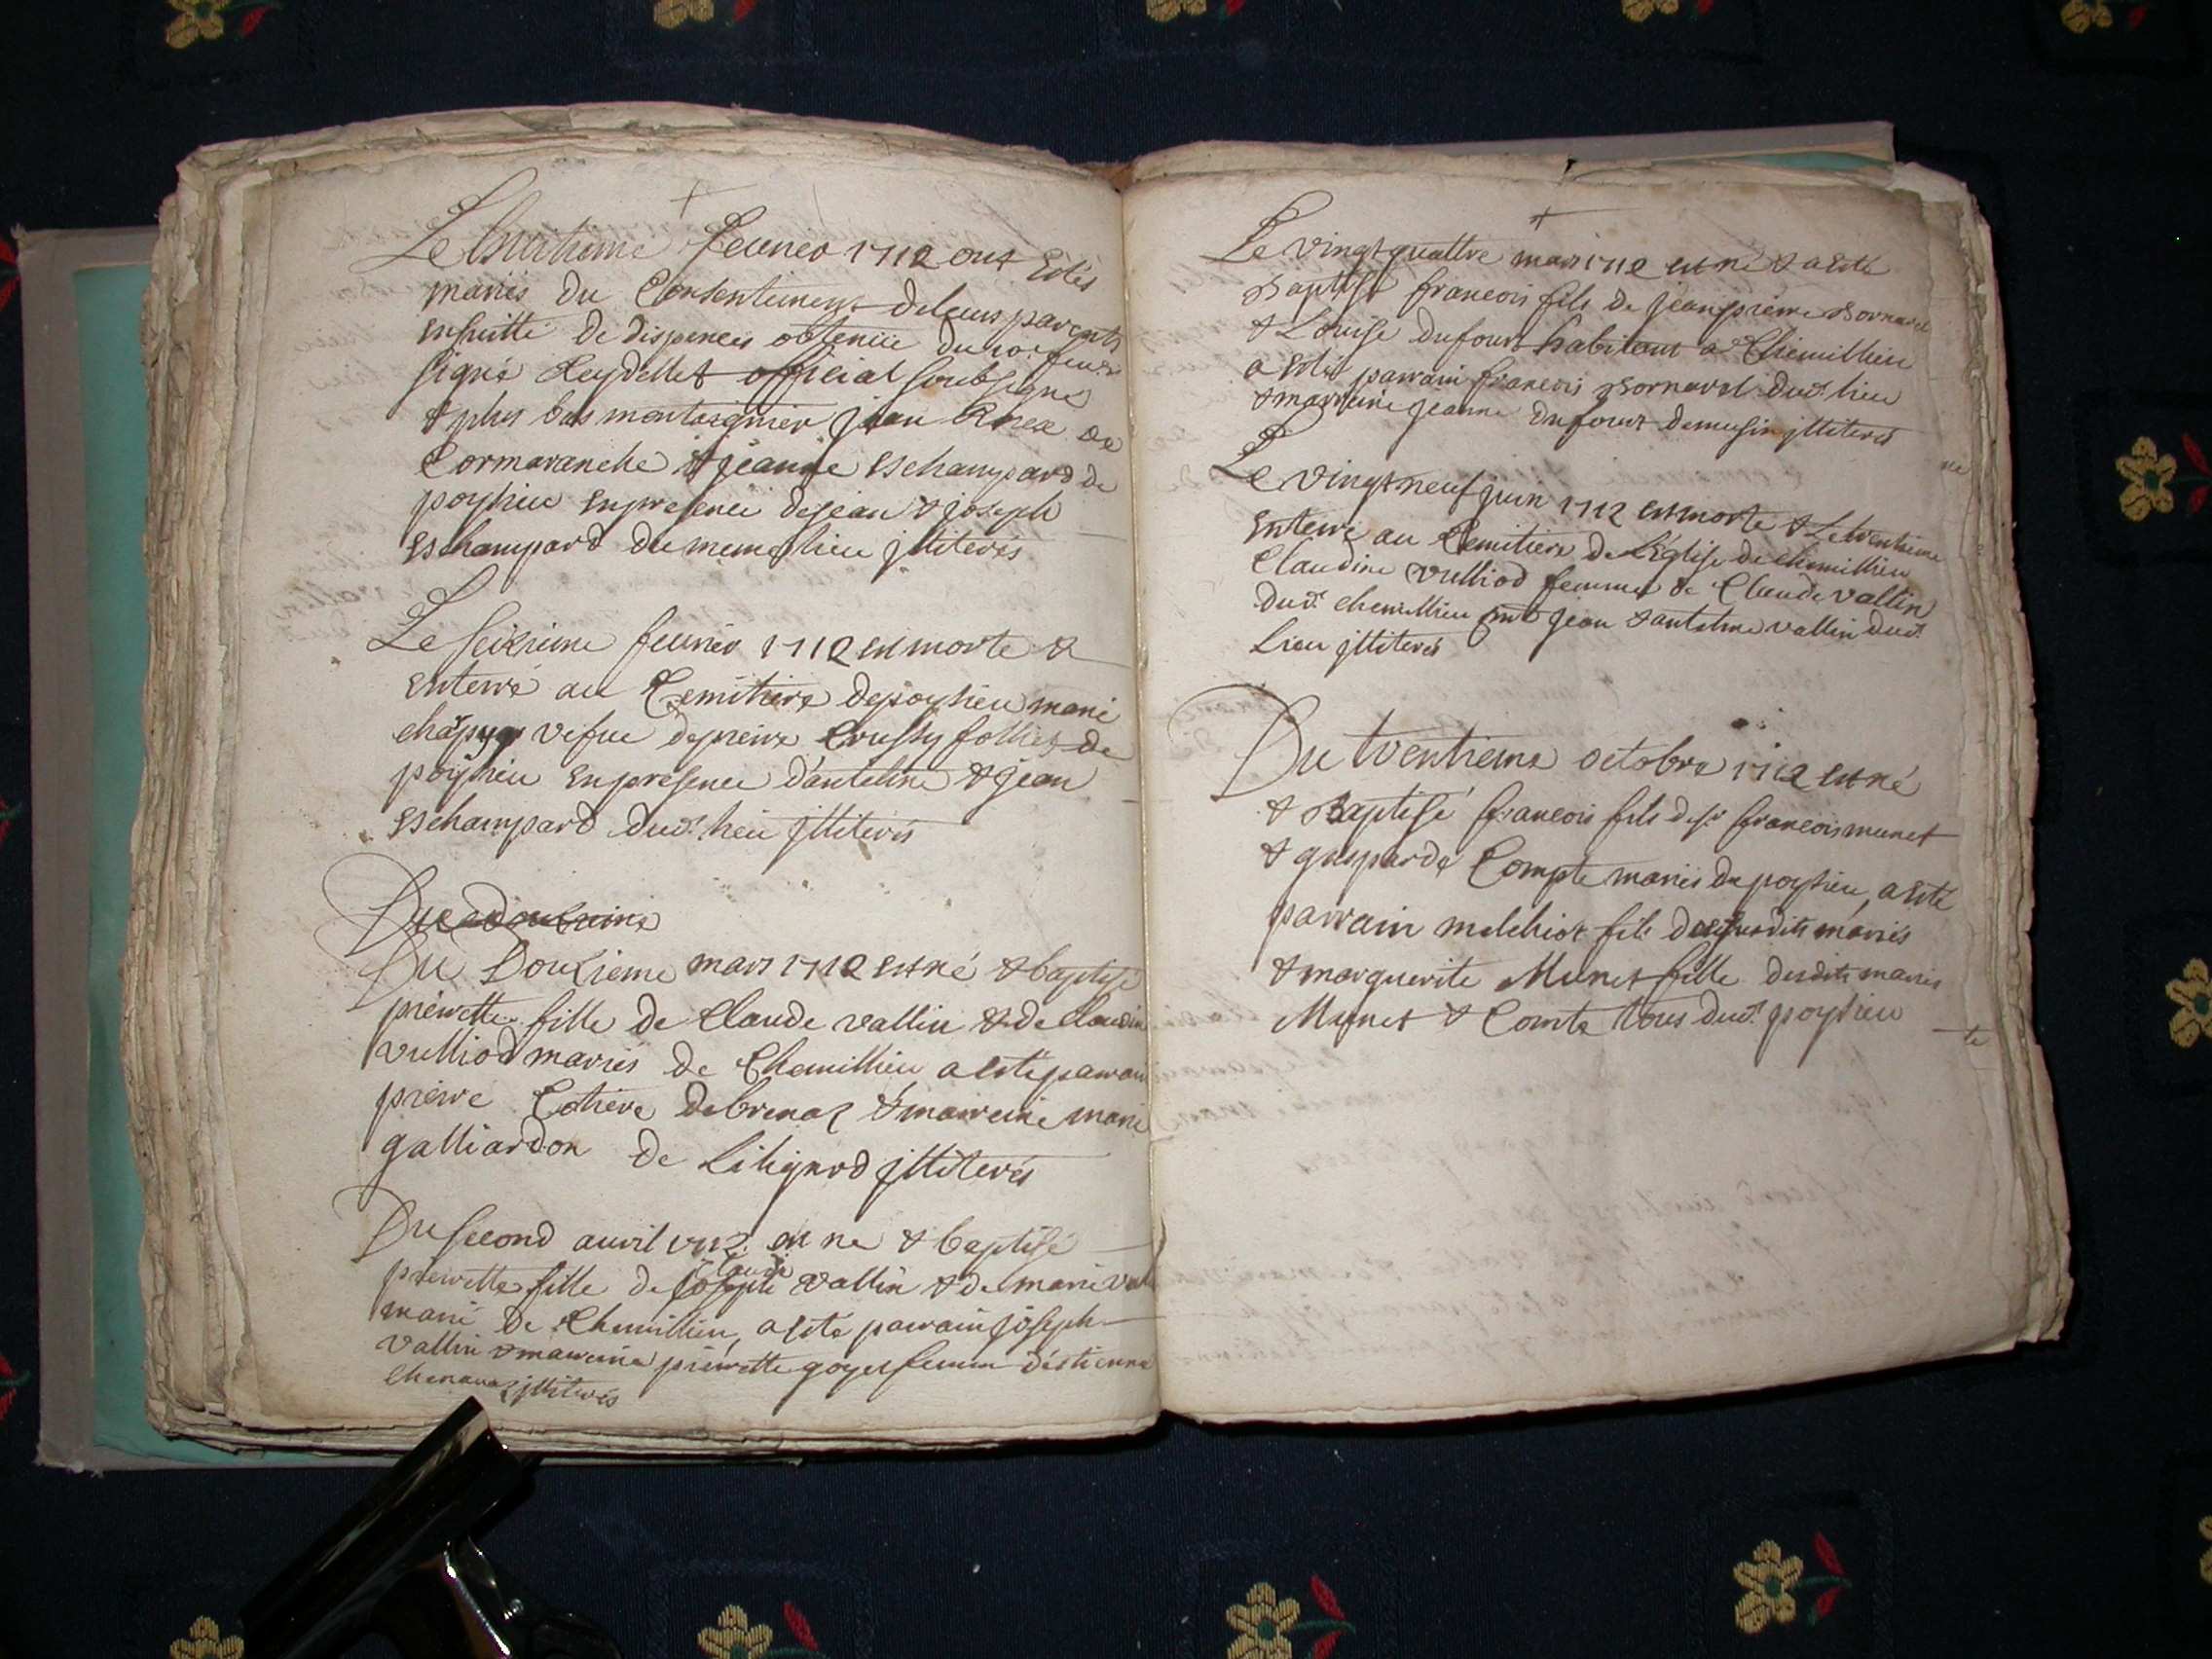 Le huictieme feurier 1712 ont Estés
mariés du Consentement de leurs parents
Ensuitte de dispences obtenüe du 10e feur.
signé Leydellet official soubsigné
& plus bas montaignier jean de
Cormaranche & jeanne Eschampard de
poysieu En presence de jean & joseph
Eschampard du meme lieu jlliterés
Le seizieme feurier 1712 est morte &
Enterré au Cemitiere de poysieu marie
chapuy vefue de pierre Crussy follies de
poysieu En presence d'anthelme & jean
Eschampard dud. lieu jlliterés
Du douzieme
Du Douzieme mars 1712 est né & baptisé
pierrette fille de Claude vallin & de Claudine
vulliod mariés de Chemillieu a esté parrain
pierre Cotiere de brenaz & marreine marie
galliardon de Lilignod jlliterés
Du second auril 1712 est né & baptisé
Claude
pierrette fille de joseph vallin & de marie
marié de Chemillieu, a esté parrain joseph
vallin & marreine pierrette goyet femme d'estienne
chenavaz jlliterés
Le vingt quattre mars 1712 est né & a esté
Baptisé francois fils de jean pierre Bornarel
& Louise dufour habitant a Chemillieu
a esté parrain francois Bornarel dud. lieu
& marreine jeanne dufour de musin jlliterés
Le vingt neuf juin 1712 est morte & Le trentieme
Enterré au Cemitiere de L'Eglise de chemillieu
Claudine vulliod femme de Claude vallin
dud. chemillieu jean & antelme vallin dud.
Lieu jlliterés
Du trentieme octobre 1712 est né
& Baptisé francois fils de sr francois munet
& gasparde Compte mariés de poysieu, a esté
parrain melchiot fils desusdits mariés
& marguerite Munet fille desdits mariés
Munet & Comte tous dud. poysieu